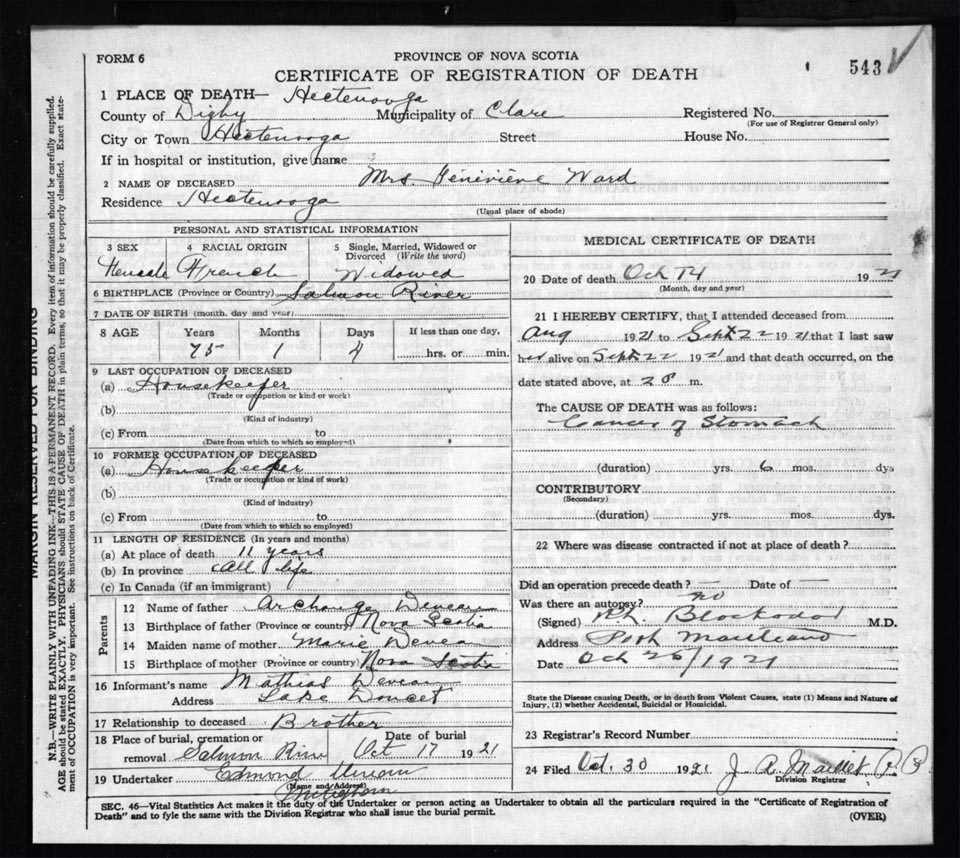 FORM 6
PROVINCE OF NOVA SCOTIA
543
CERTIFICATE OF REGISTRATION OF DEATH
1 PLACE OF DEATH— Hectenooga
County of Digby Municipality of Clare Registered No.
(For use of Registrar General only)
City or Town Hectenooga Street House No.
If in hospital or institution, give name
2 NAME OF DECEASED Mrs. Géneviève Ward
Residence Hectenooga
(Usual place of abode)
PERSONAL AND STATISTICAL INFORMATION
3 SEX 4 RACIAL ORIGIN 5 Single, Married, Widowed or Divorced (Write the word)
Female French Widowed
6 BIRTHPLACE (Province or Country) Salmon River
7 DATE OF BIRTH (month, day and year)
8 AGE Years Months Days If less than one day,
75 1 4 hrs. or min.
9 LAST OCCUPATION OF DECEASED
(a) Housekeeper
(Trade or occupation or kind or work)
(b)
(Kind of industry)
(c) From to
(Date from which to which so employed)
10 FORMER OCCUPATION OF DECEASED
(a) Housekeeper
(Trade or occupation or kind of work)
(b)
(Kind of industry)
(c) From to
(Date from which to which so employed)
11 LENGTH OF RESIDENCE (In years and months)
(a) At place of death 11 years
(b) In province All life
(c) In Canada (if an immigrant)
Parents
12 Name of father Archange Deveau
13 Birthplace of father (Province or country) Nova Scotia
14 Maiden name of mother Marie Devea
15 Birthplace of mother (Province or country) Nova Scotia
16 Informant's name Mathias Deveau
Address Lake Doucet
17 Relationship to deceased Brother
18 Place of burial, cremation or removal Date of burial
Salmon River Oct 17 1921
19 Undertaker Edmond
(Name and Address)
MEDICAL CERTIFICATE OF DEATH
20 Date of death Oct 14 1921
(Month, day and year)
21 I HEREBY CERTIFY, that I attended deceased from
Aug 1921 to Sept 22 1921 that I last saw
her alive on Sept 22 1921 and that death occurred, on the
date stated above, at 2 m.
The CAUSE OF DEATH was as follows:
Cancer of Stomach
(duration) yrs. 6 mos. dys
CONTRIBUTORY
(Secondary)
(duration) yrs. mos. dys.
22 Where was disease contracted if not at place of death?
Did an operation precede death? — Date of —
Was there an autopsy? no
(Signed) M.D.
Address Port Maitland
Date Oct 26/1921
State the Disease causing Death, or in death from Violent Causes, state (1) Means and Nature of
Injury, (2) whether Accidental, Suicidal or Homicidal.
23 Registrar's Record Number
24 Filed Oct. 30 1921 J A Maillet
Division Registrar
SEC. 46—Vital Statistics Act makes it the duty of the Undertaker or person acting as Undertaker to obtain all the particulars required in the "Certificate of Registration of
Death" and to fyle the same with the Division Registrar who shall issue the burial permit.
(OVER)
MARGIN RESERVED FOR BINDING
N.B.—WRITE PLAINLY WITH UNFADING INK—THIS IS A PERMANENT RECORD. Every item of information should be carefully supplied.
AGE should be stated EXACTLY. PHYSICIANS should STATE CAUSE OF DEATH in plain terms, so that it may be properly classified. Exact state-
ment of OCCUPATION is very important. See instructions on back of Certificate.